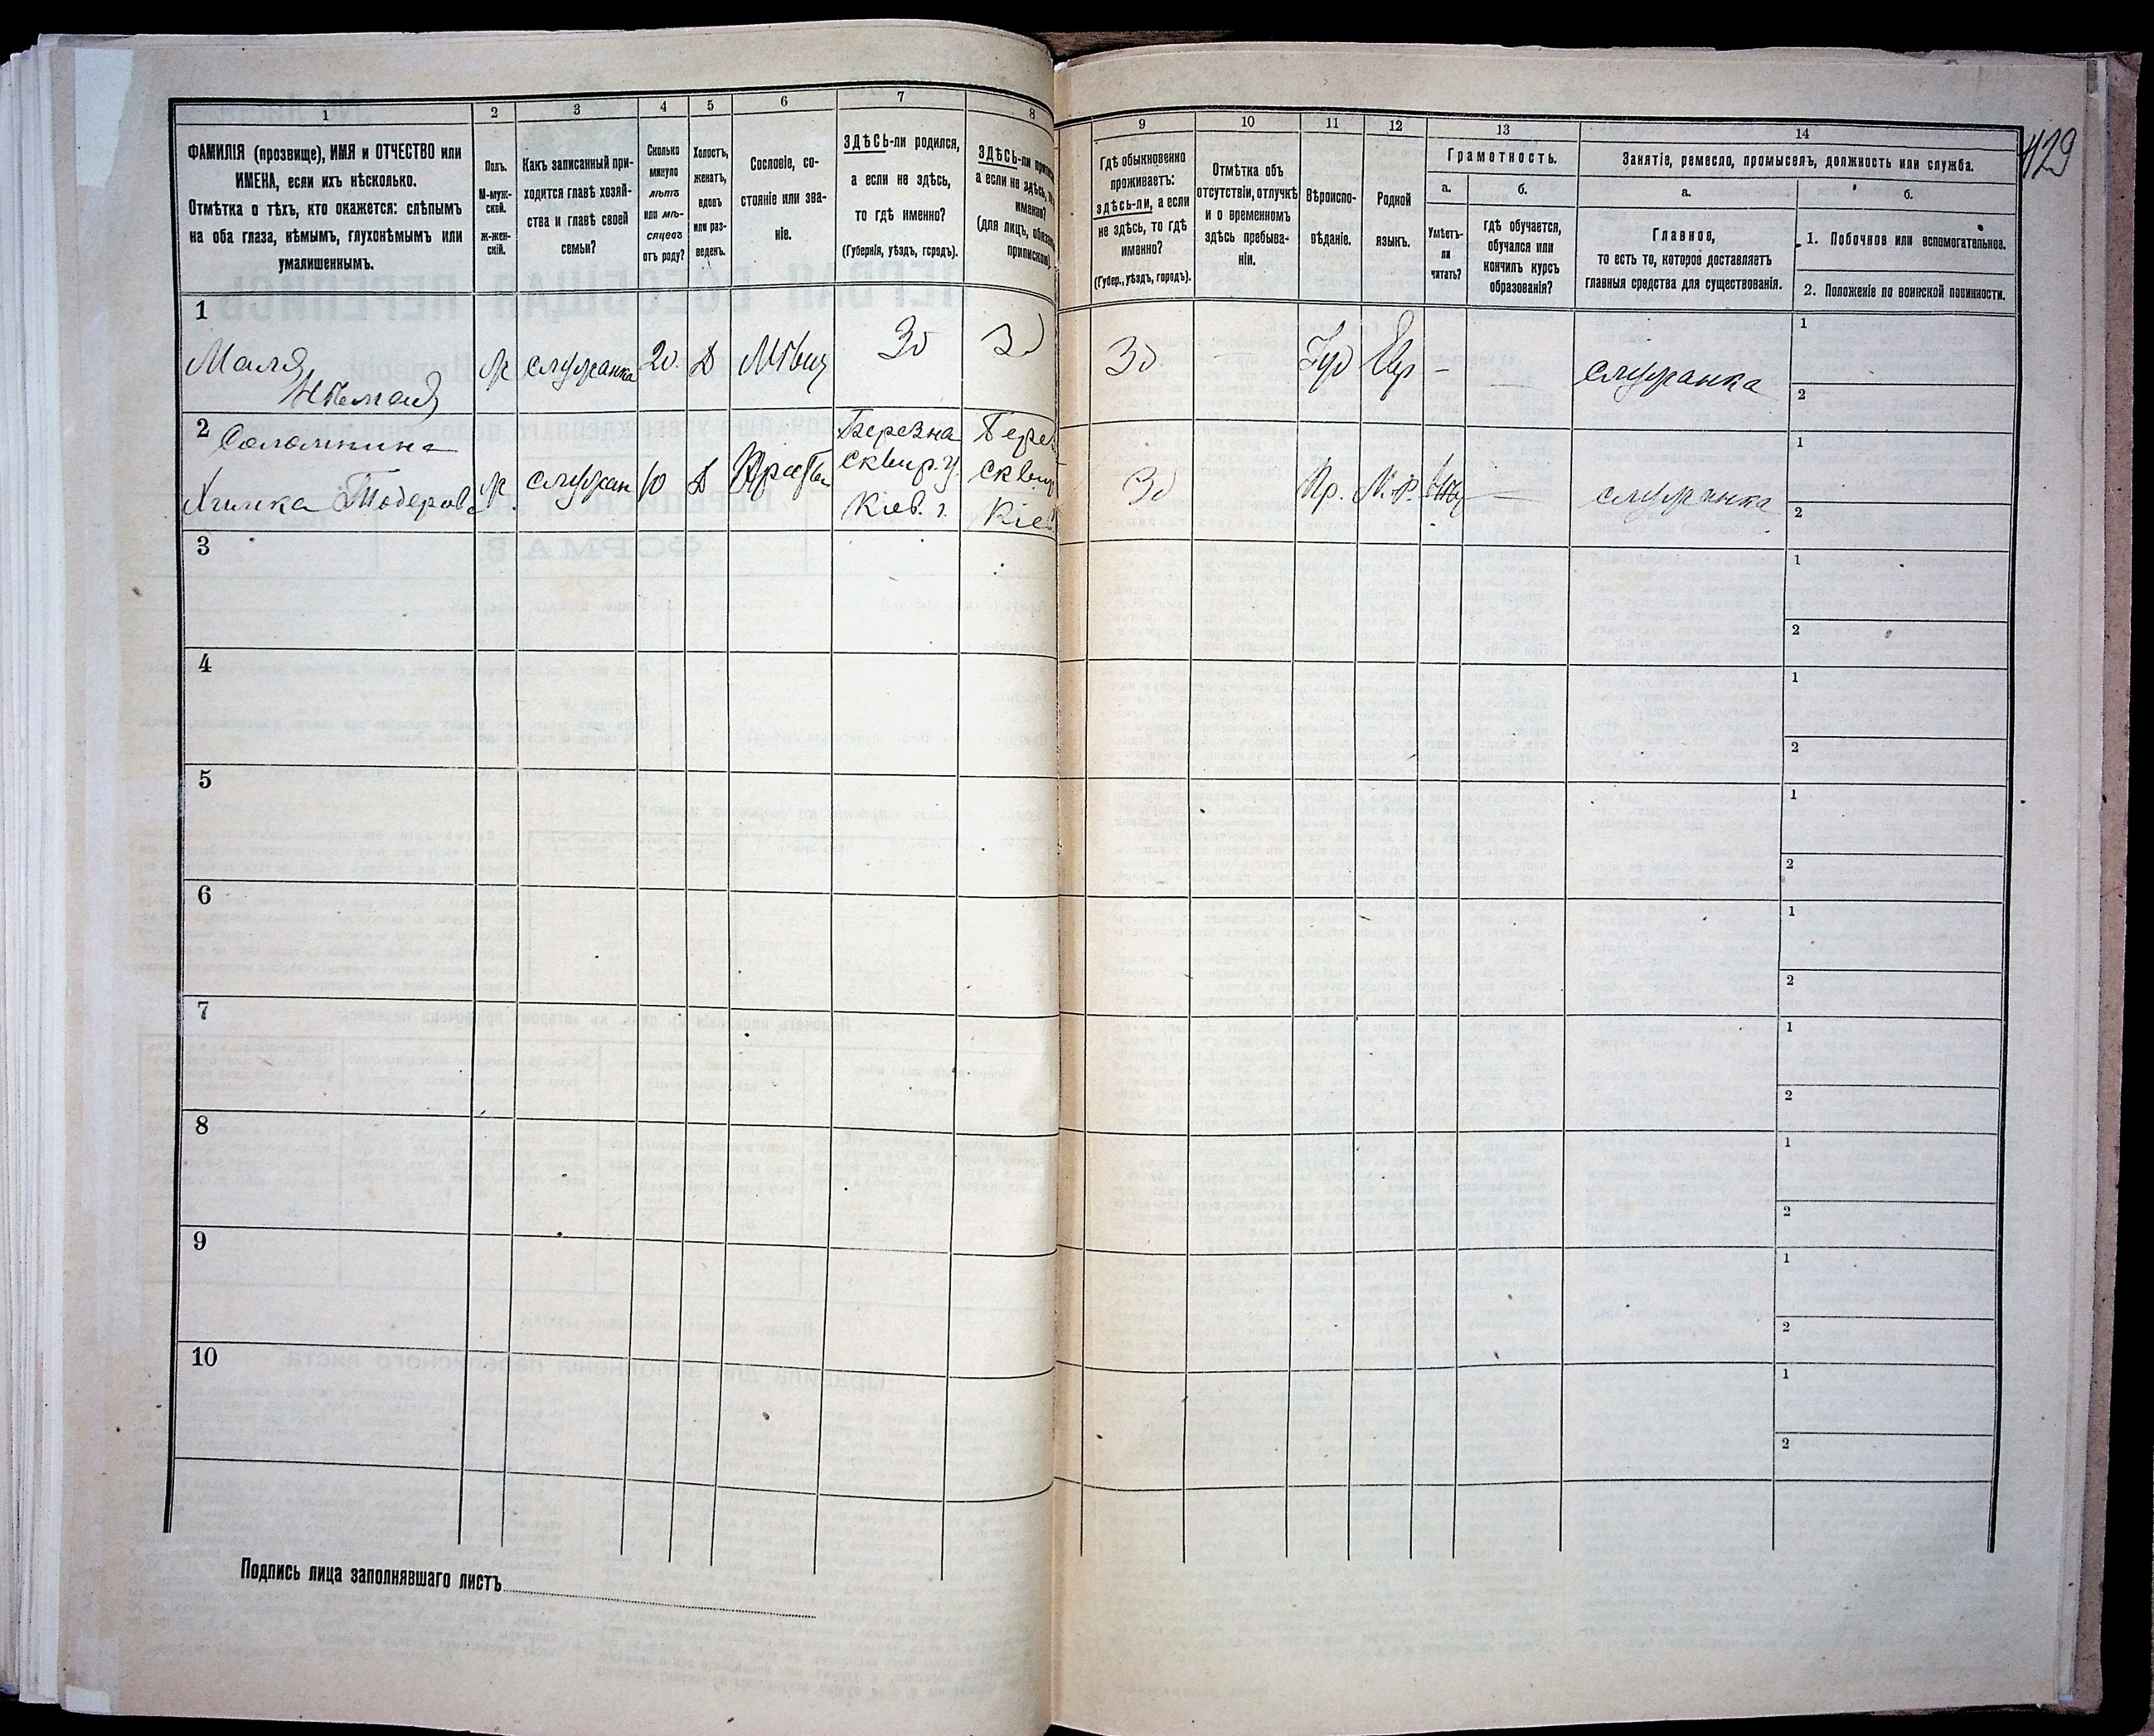 1 2 3 4 5 6 7 8 9 10 11 12 13 14
429
ФАМИЛІЯ (прозвище), ИМЯ и ОТЧЕСТВО или
ИМЕНА, если ихъ нѣсколько.
Отмѣтка о тѣхъ, кто окажется: слѣпымъ
на оба глаза, нѣмымъ, глухонѣмымъ или
умалишеннымъ.
Полъ.
М-муж-
ской.
ж-жен-
скій.
Какъ записанный при-
ходится главѣ хозяй-
ства и главѣ своей
семьи?
Сколько
минуло
лѣтъ
или мѣ-
сяцевъ
отъ роду?
Холостъ,
женатъ,
вдовъ
или раз-
веденъ.
Сословіе, со-
стояніе или зва-
ніе.
ЗДѢСЬ-ли родился,
а если не здѣсь,
то гдѣ именно?
(Губернія, уѣздъ, городъ).
ЗДѢСЬ-ли
а если не здѣсь,
именно?
(для лицъ,
припиской)
Гдѣ обыкновенно
проживаетъ:
здѣсь-ли, а если
не здѣсь, то гдѣ
именно?
(Губер., уѣздъ, городъ).
Отмѣтка объ
отсутствіи, отлучкѣ
и о временномъ
здѣсь пребыва-
ніи.
Вѣроиспо-
вѣданіе.
Родной
языкъ.
Грамотность.
а. б.
Умѣетъ-
ли
читать?
гдѣ обучается,
обучался или
кончилъ курсъ
образованія?
Занятіе, ремесло, промыселъ, должность или служба.
а. б.
Главное,
то есть то, которое доставляетъ
главныя средства для существованія.
1. Побочное или вспомогательное.
2. Положеніе по воинской повинности.
1
Маля
ж служанка 20. Д Мѣщ Зд Зд Зд Іуд Евр - служанка
1
2
2 Соломкина
Химка Тодорова ж служан 10 Д
Березна
сквир. у.
Кіев. г.
Бере
сквир
Кіе
Зд Пр. М.Р. служанка
1
2
3
1
2
4
1
2
5
1
2
6
1
2
7
1
2
8
1
2
9
1
2
10
1
2
Подпись лица заполнявшаго листъ